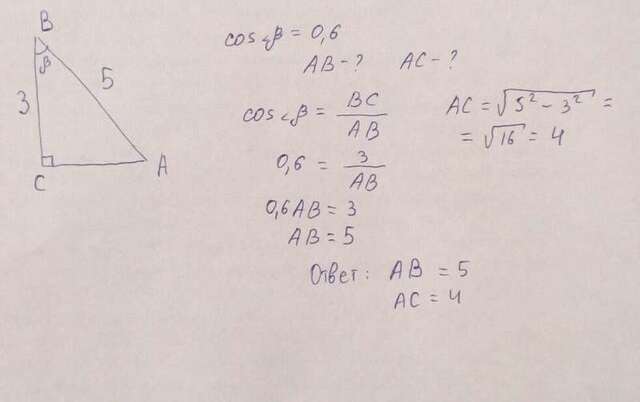 B
β
5
3
C
A
cos∠β = 0,6
AB - ? AC - ?
cos∠β = BC/AB
0,6 = 3/AB
0,6AB = 3
AB = 5
AC = √(5² - 3²) =
= √16 = 4
Ответ: AB = 5
AC = 4